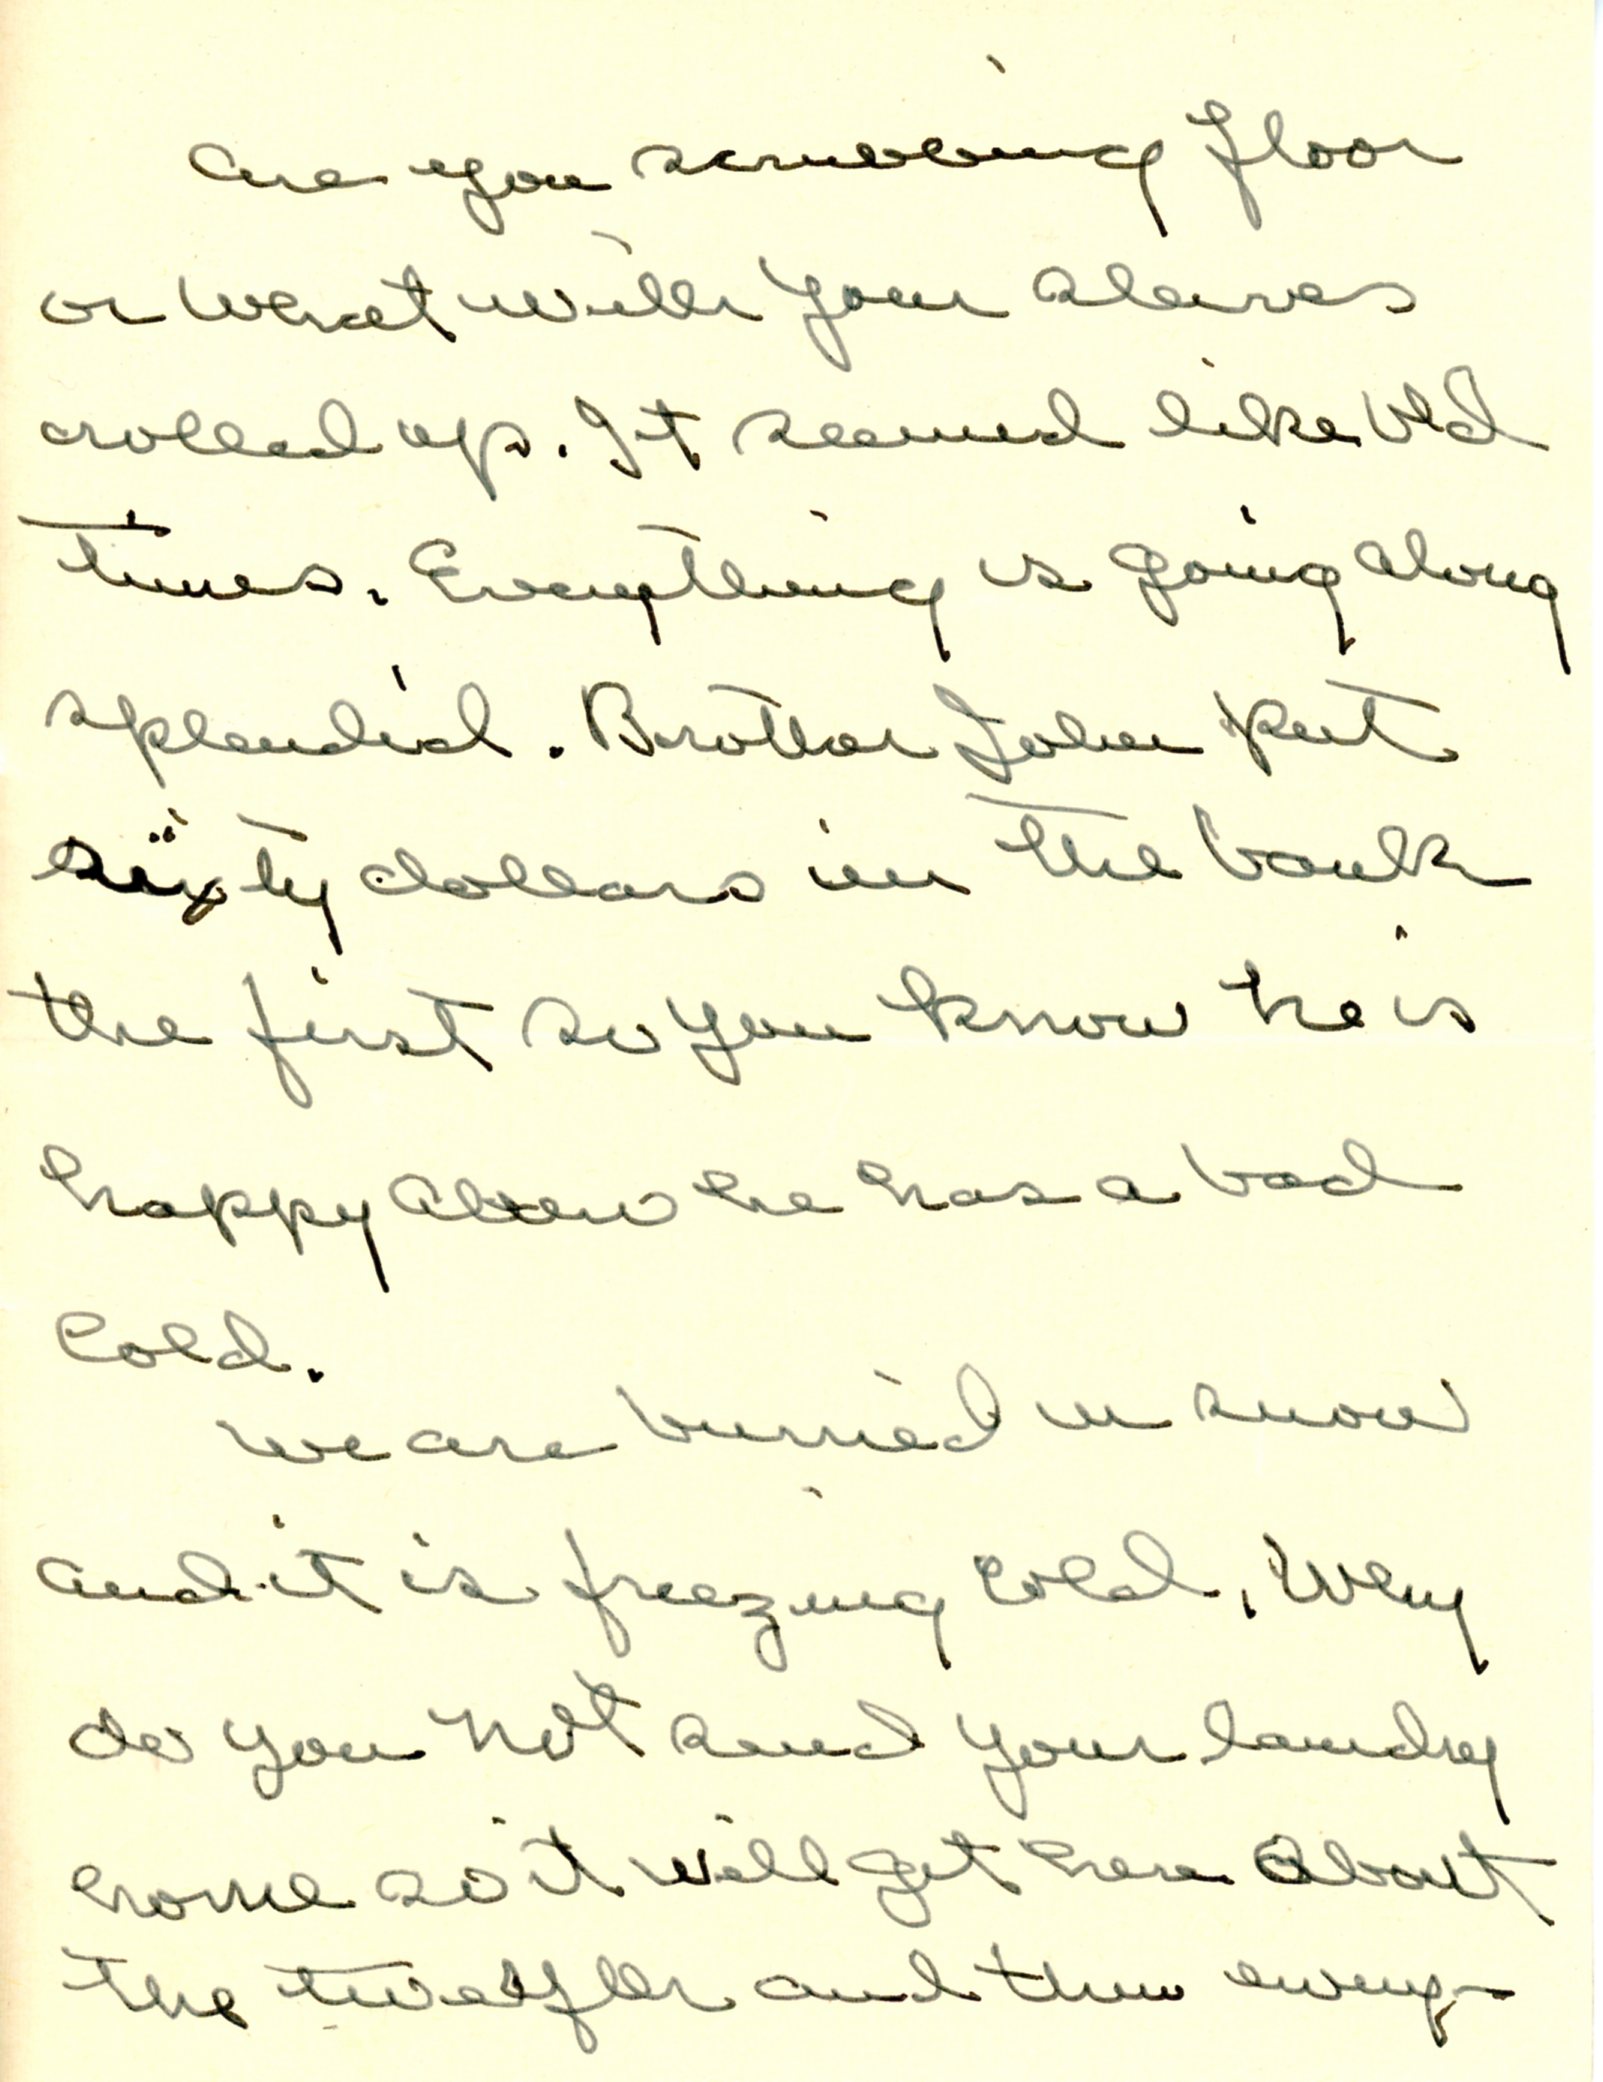 Are you scrubbing floor
or what with your sleaves
rolled up. It seemed like old
times. Everything is going along
splendid. Brother John put
sixty dollars in the bank
the first so you know he is
happy altho he has a bad
cold.
We are burried in snow
and it is freezing cold. Why
do you not send your laundry
home so it will get here about
the twelfth and then every-